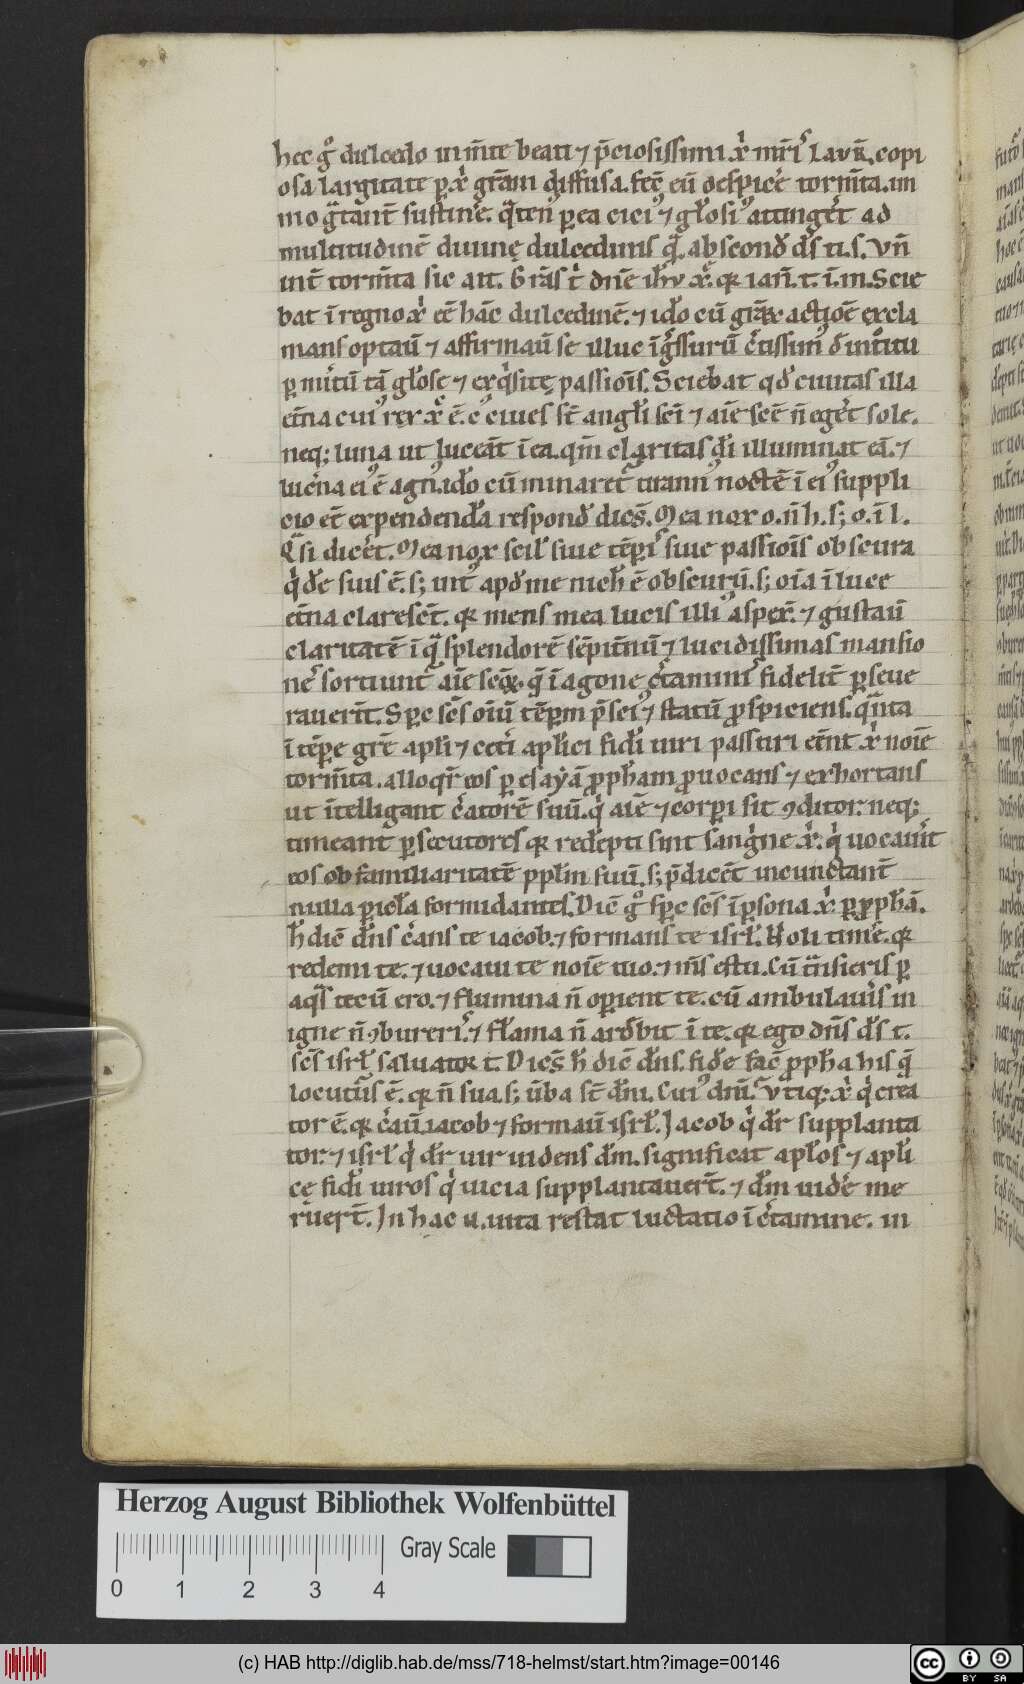 hec gͦ dulcedo in m̅te beati ⁊ p̅ciosissimi xͥ mr̅iſ Laur̅. copi
osa largitate p̱ xͥ gr̅am diffusa. fec̅ eu̅ despice̅ torm̅ta. im
mo gͣtant̅ sustine̅. qͣten᷒ p̱ ea ei᷒ ⁊ gl̅osi᷒ attinge̅t ad
multitudine̅ diuine̜ dulcedinis qͣ. abscond̅ d̅s ti. s. Vn̅
int̅ torm̅ta sic ait. Gr̅as t̅ dn̅e ih̅u xͤ. qꝛ ian̅. t. i̅. m. Scie
bat i̅ regno xͥ ee̅ ha̅c dulcedine̅. ⁊ ido̅ cu̅ gr̅aꝝ actio̅e excla
mans optau̅ ⁊ affirmau̅ se illuc i̅gͤssuru̅ c̅tissim᷒ d̅ int̅itu
p̱ mi̅tu̅ ta̅ gl̅ose ⁊ exqͥsite̜ passio̅is. Sciebat qd̅ ciuitas illa
et̅na cui᷒ rex xͤ e̅. c᷒ ciues st̅ angl̅i sc̅i ⁊ ai̅e sc̅e n̅ ege̅t sole.
neq; luna ut lucea̅t i̅ ea. qm̅ claritas d̅i illuminat ea̅. ⁊
luc̅na ei᷒ e̅ agn᷒. ido̅ cu̅ minaret᷑ tirann᷒ nocte̅ i̅ ei᷒ suppli
cio et̅ expendenda̅ respond̅ dice̅s. Mea nox o. n̅ h. s; o. i̅ l.
Qͣsi dice̅t. Mea nox scil̅ siue te̅pi̅s siue passio̅is obscura
qͥde̅ suis e̅. s; int̅ apd̅ me nich̅ e̅ obscuru̅. s; oi̅a i̅ luce
et̅na claresc̅t. qꝛ mens mea lucis illi᷒ aspex̅. ⁊ gustau̅
claritate̅ i̅ qͣ splendore̅ se̅pit̅nu̅ ⁊ lucidissimas mansio
ne̅s sortiunt᷑ ai̅e sc̅oꝝ. qͥ i̅ agone c̅taminiſ fidelit̅ p̱seue
rauerin̅t. Spc sc̅s oi̅u̅ te̅poꝝ p̅sci᷒ ⁊ statu̅ ꝓspiciens. qͣnta
i̅ te̅pe gr̅e apl̅i ⁊ cet̅i apl̅ici fid̅i uiri passuri et̅nt xͥ no̅ie
torm̅ta. alloqͥt᷑ eos p̱ esaya̅ ꝓph̅am ꝓuocans ⁊ exhortans
ut i̅telligant c̅atore̅ suu̅. qͥ ai̅e ⁊ corp̱i sit ꝯditor. neq;
timeant p̱secutores qꝛ rede̅pti sint sangͥne xͥ. qͥ uocauit
eos ob familiaritate̅ ppl̅m suu̅. s; p̅dice̅t incunctant̅
nulla p̱icl̅a formidantes. Dic̅ gͦ spc sc̅s i̅ p̱sona xͥ p̱ ꝓph̅a̅.
h̅ dic̅ dn̅s c̅ans te iacob. ⁊ formans te isrl̅. Noli time̅. qꝛ
redemi te. ⁊ uocaui te no̅ie tuo. ⁊ m̅s es tu. Cu̅ tr̅nsieris p̱
aqͣs tecu̅ ero. ⁊ flumina n̅ operient te. cu̅ ambulaui̅s in
igne n̅ ꝯbureri̅s. ⁊ flama̅ n̅ ard̅bit i̅ te. qꝛ ego dn̅s d̅s t.
sc̅s isrl̅ saluator t. Dice̅s h̅ dic̅ dn̅s. fide̅ fac̅ ꝓph̅a his qͥ
locutu̅s e̅. qꝛ n̅ sua. s; u̅ba st̅ dn̅i. Cui᷒ dn̅i. Vtiq; xͥ qͥ crea
tor e̅. qꝛ c̅au̅ iacob ⁊ formau̅ isrl̅. Jacob qͥ dr̅ supplanta
tor. ⁊ isrl̅ qͥ dr̅ uir uidens dm̅. significat apl̅os ⁊ apl̅i
ce fid̅i uiros qͥ uicia supplantauert̅. ⁊ dm̅ uide̅ me
ruert̅. In hac u. uita restat luctatio i̅ c̅tamine. in
Herzog August Bibliothek Wolfenbüttel
Gray Scale
0 1 2 3 4
(c) HAB http://diglib.hab.de/mss/718-helmst/start.htm?image=00146
CC BY SA